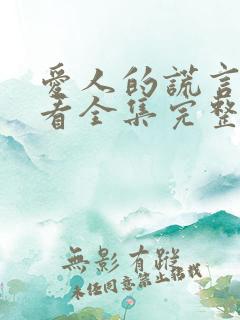 愛人的謊言
者全集完整
無影有蹤
未經同意禁止轉載